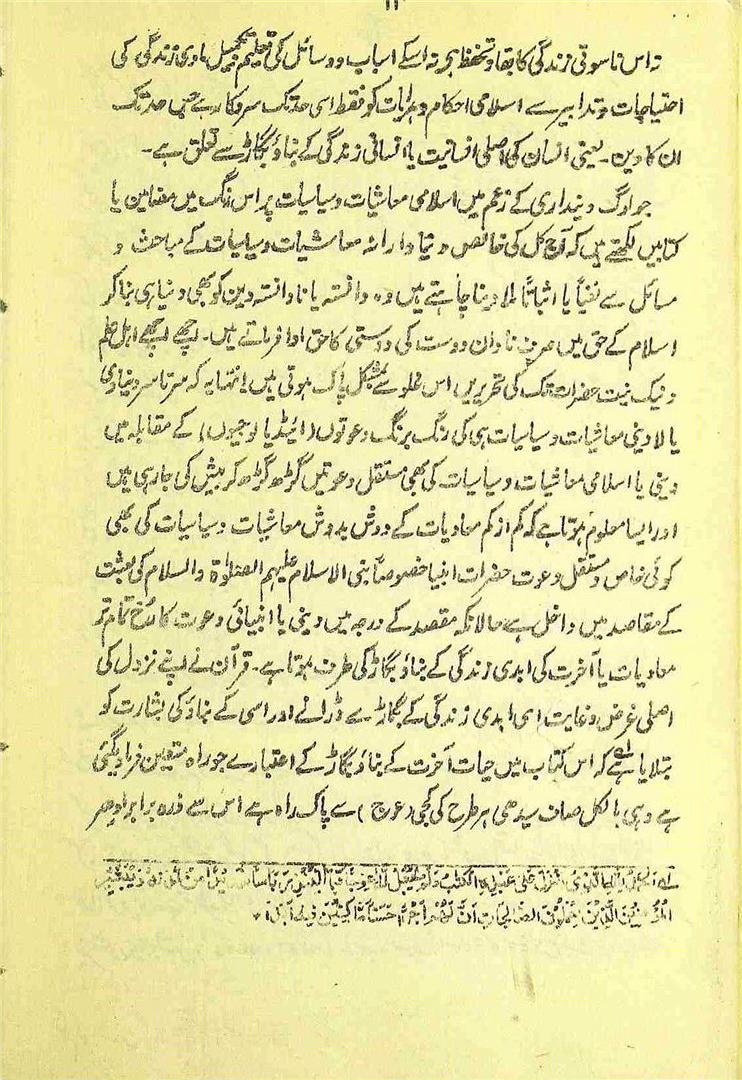 ۱۱
نہ اس ناسوتی زندگی کا بقا و تحفظ ہے نہ اسکے اسباب و وسائل کی تعلیم و تکمیل مادی زندگی کی
احتیاجات و تدابیر سے اسلامی احکام و ہدایات کو فقط اسی حد تک سروکار ہے جس حد تک
ان کا دین ۔ یعنی انسان کی اصلی انسانیت یا انسانی زندگی کے بناؤ بگاڑ سے تعلق ہے ۔
جو لوگ دینداری کے زعم میں اسلامی معاشیات و سیاسیات پر اس رنگ میں مضامین یا
کتابیں لکھتے ہیں کہ آج کل کی خالص دنیا دارانہ معاشیات و سیاسیات کے مباحث و
مسائل سے نفیاً یا اثباتاً ملا دینا چاہتے ہیں وہ دانستہ یا نادانستہ دین کو بھی دنیا ہی بنا کر
اسلام کے حق میں صرف نادان دوست کی دوستی کا حق ادا فرماتے ہیں۔ اچھے اچھے اہل علم
و نیک نیت حضرات تک کی تحریریں اس غلو سے بمشکل پاک ہوتی ہیں انتہا یہ کہ سرتاسر دنیاوی
یا لادینی معاشیات و سیاسیات ہی کی رنگ برنگ دعوتوں (ائیڈیا لوجیوں) کے مقابلہ میں
دینی یا اسلامی معاشیات و سیاسیات کی بھی مستقل دعوتیں گڑھ گڑھ کر پیش کی جا رہی ہیں
اور ایسا معلوم ہوتا ہے کہ کم از کم معادیات کے دوش بدوش معاشیات و سیاسیات کی بھی
کوئی خاص و مستقل دعوت حضرات انبیا خصوصاً نبی الاسلام علیہم الصلوٰۃ والسلام کی بعثت
کے مقاصد میں داخل ہے حالانکہ مقصد کے درجہ میں دینی یا انبیائی دعوت کا رخ تمام تر
معادیات یا آخرت کی ابدی زندگی کے بناؤ بگاڑ کی طرف ہوتا ہے۔ قرآن نے اپنے نزول کی
اصلی غرض و غایت اسی ابدی زندگی کے بگاڑ سے ڈرانے اور اسی کے بناؤ کی بشارت کو
بتلایا ہے لہ کہ اس کتاب میں حیات آخرت کے بناؤ بگاڑ کے اعتبار سے جو راہ متعین فرما دیگئی
ہے وہی بالکل صاف سیدھی ہر طرح کی کجی (عوج) سے پاک راہ ہے اس سے ذرہ برابر ادھر
لہ الحمد للہ الذی انزل علی عبدہ الکتٰب ولم یجعل لہ عوجا قیما لینذر باسا شدیدا من لدنہ و یبشر
المؤمنین الذین یعملون الصٰلحات ان لھم اجرا حسنا ماکثین فیہ ابدا ۔